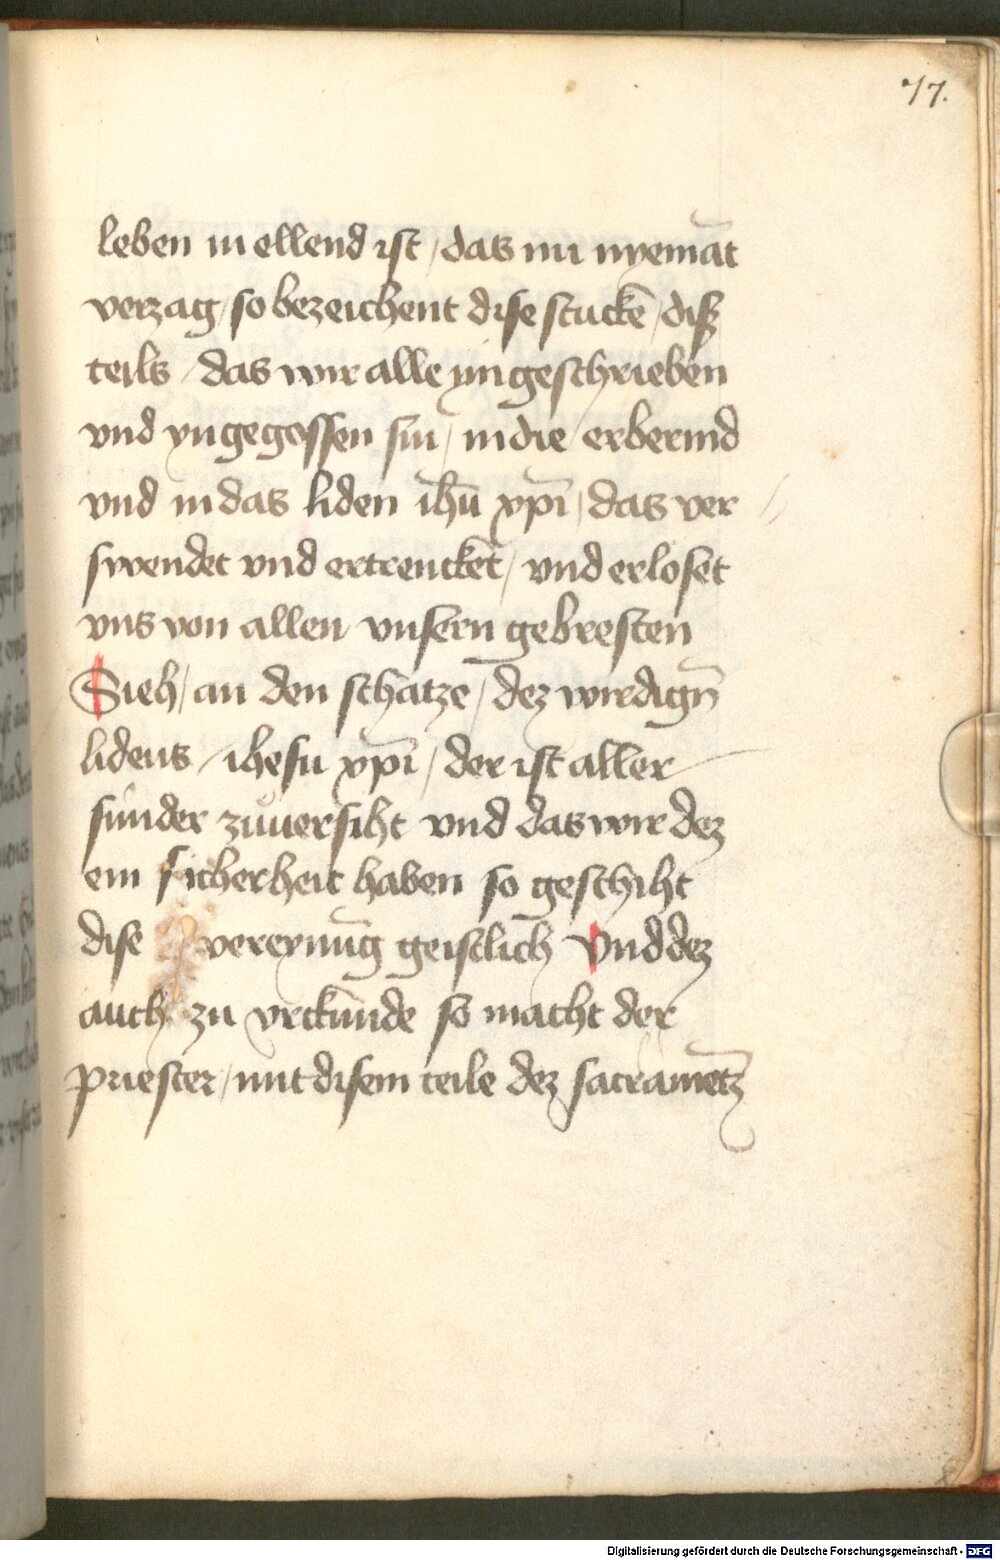 77.
leben in ellend ist / das nu nyemāt
verzag / so bezeichent dise stuckē / diß
teils / das wir alle yngeschrieben
vnd yngegossen sin / in die erbermd
vnd in das liden ihū xp̄i / das ver
swendet vnd ertrencket / vnd erloset
vns von allen vnsern gebresten
Sieh / an den schatze / dez wirdign̄
lidens / ihesu xp̄i / der ist aller
sunder zuuersiht vnd das wir dez
ein sicherheit haben so geschiht
dise vereynūg geistlich Vnd dez
auch zu vrkunde so macht der
priester / mit disem teile dez sacrametz
Digitalisierung gefördert durch die Deutsche Forschungsgemeinschaft - DFG